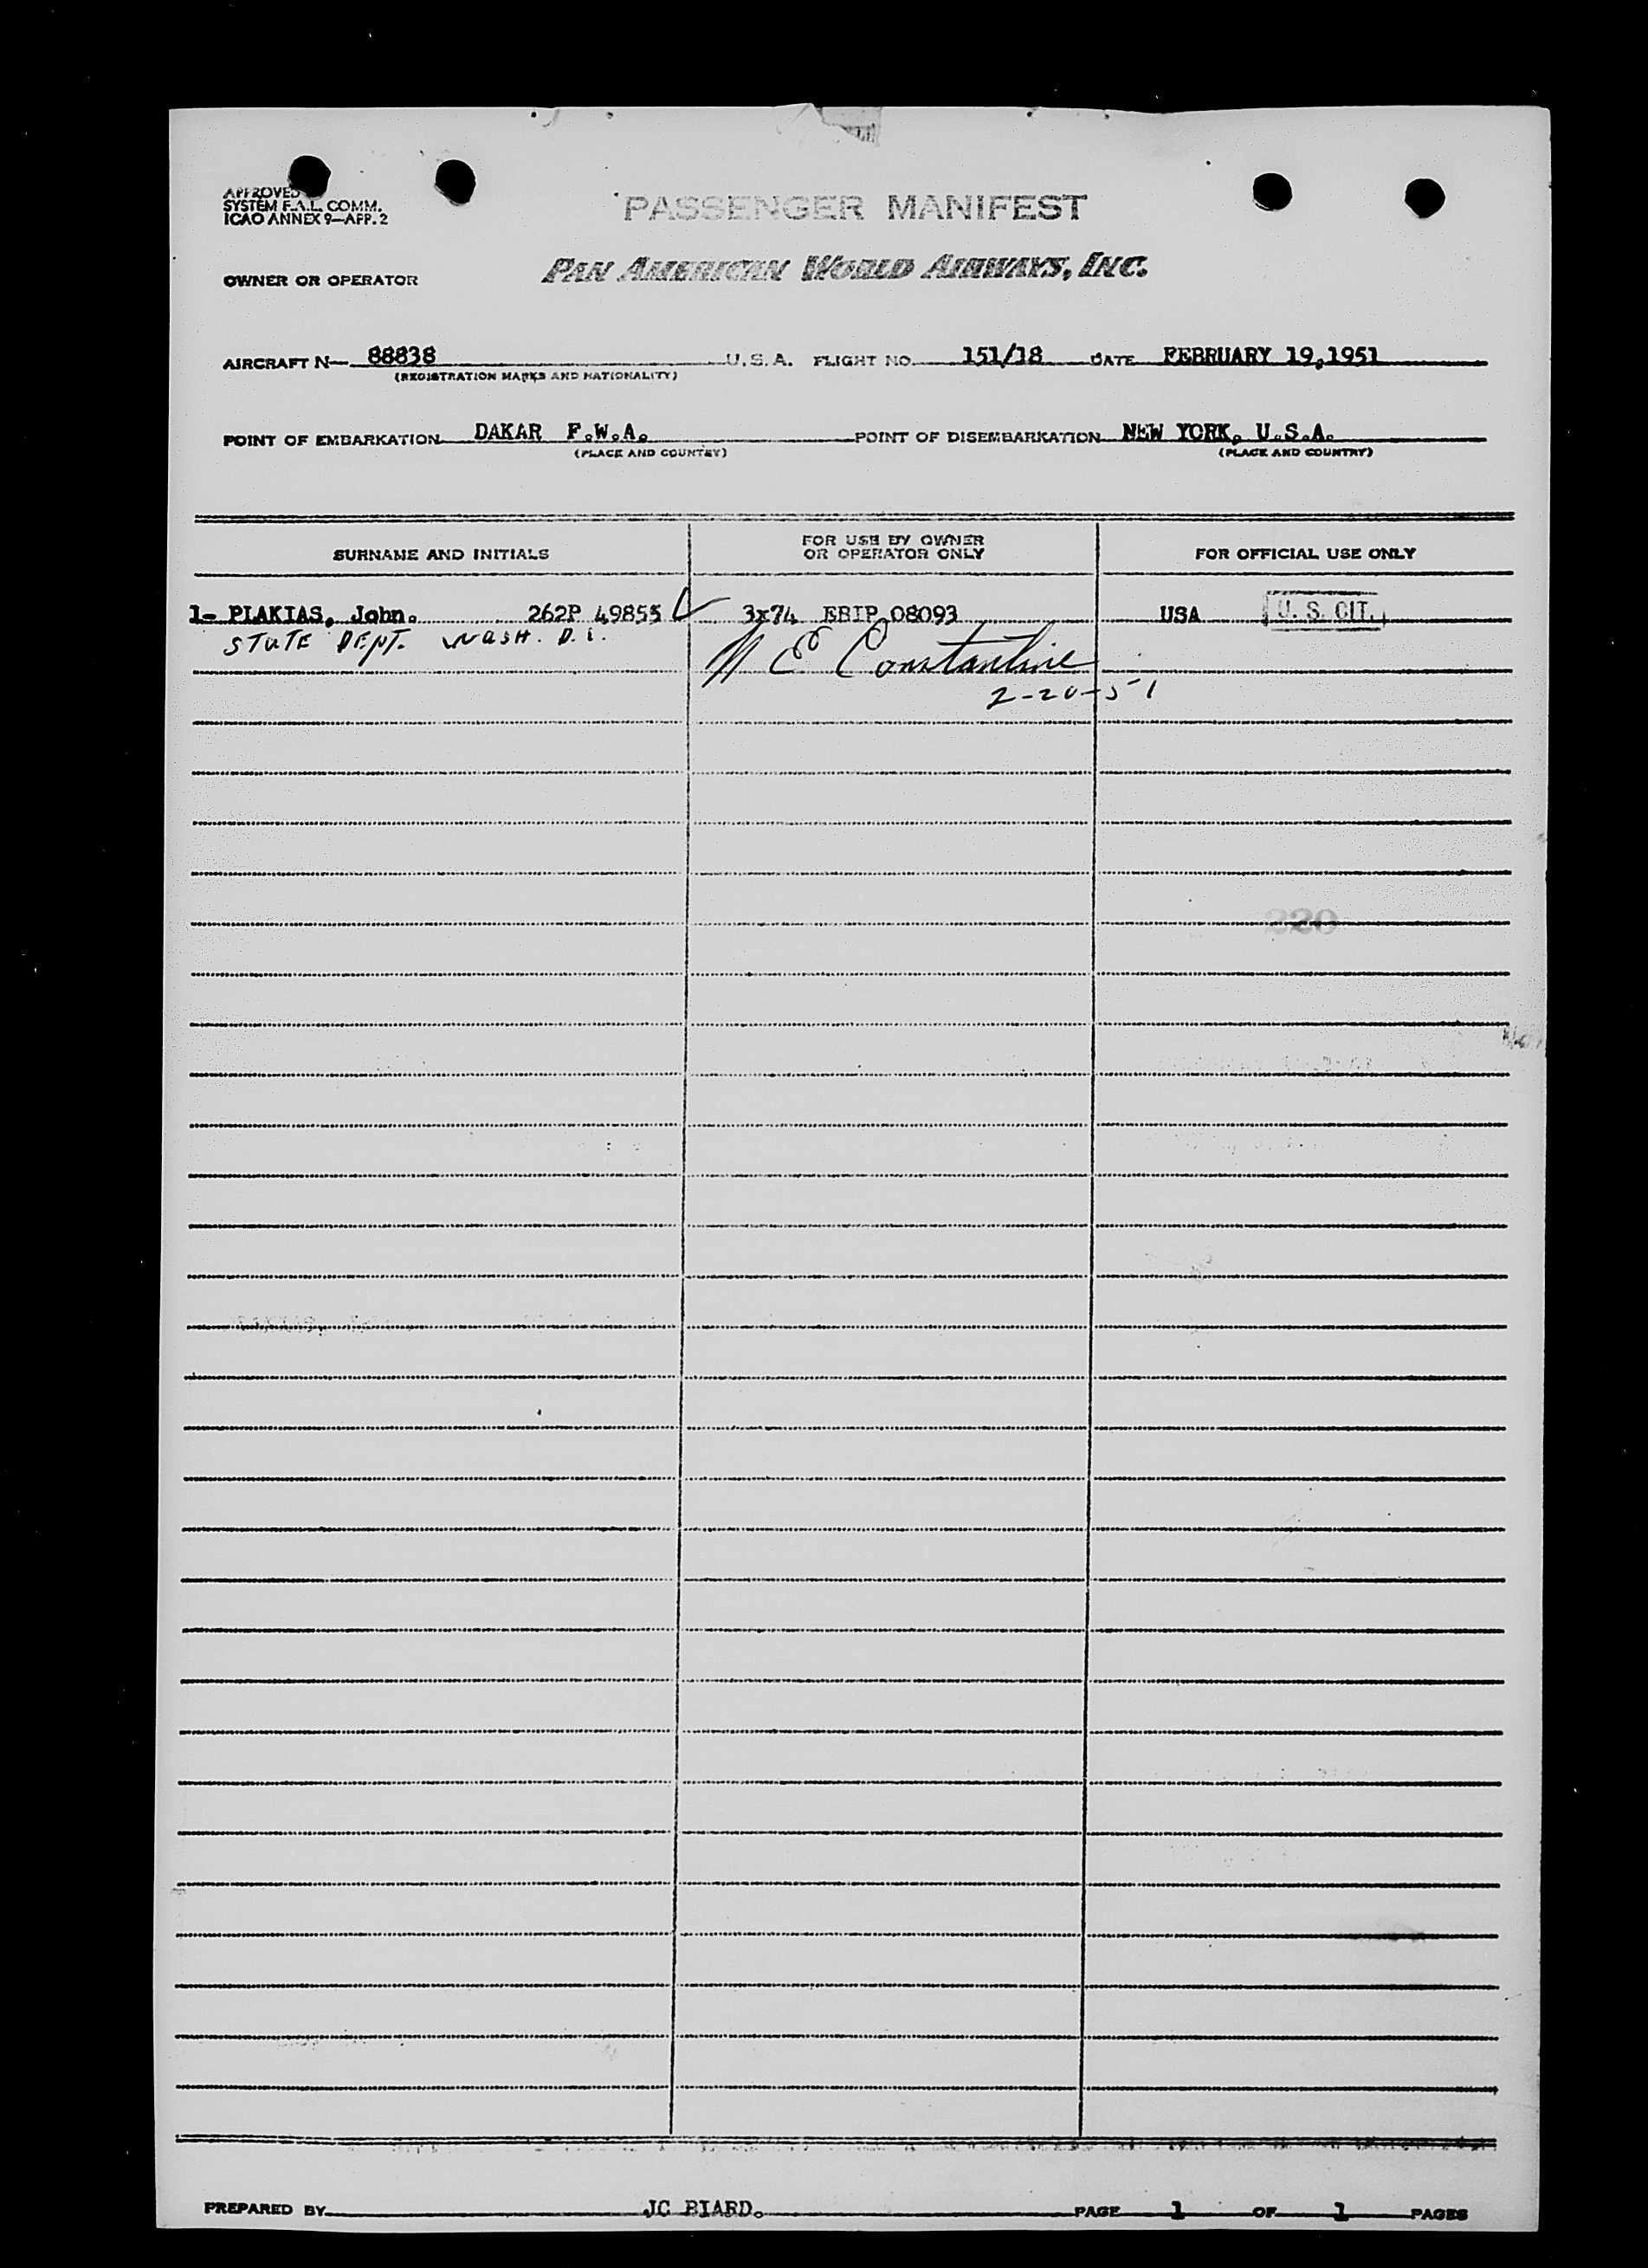 APPROVED
SYSTEM F.A.L. COMM.
ICAO ANNEX 9—APP. 2
PASSENGER MANIFEST
OWNER OR OPERATOR PAN AMERICAN WORLD AIRWAYS, INC.
AIRCRAFT N— 88838 U.S.A. FLIGHT NO. 151/18 DATE FEBRUARY 19,1951
(REGISTRATION MARKS AND NATIONALITY)
POINT OF EMBARKATION DAKAR F.W.A. POINT OF DISEMBARKATION NEW YORK, U.S.A.
(PLACE AND COUNTRY) (PLACE AND COUNTRY)
SURNAME AND INITIALS FOR USE BY OWNER OR OPERATOR ONLY FOR OFFICIAL USE ONLY
1- PLAKIAS, John. 262P 49855 3x74 EBIP 08093 USA U. S. CIT.
STATE DEPT. WASH. D.C.
N E Constantine
2-20-51
220
PREPARED BY JC BIARD. PAGE 1 OF 1 PAGES